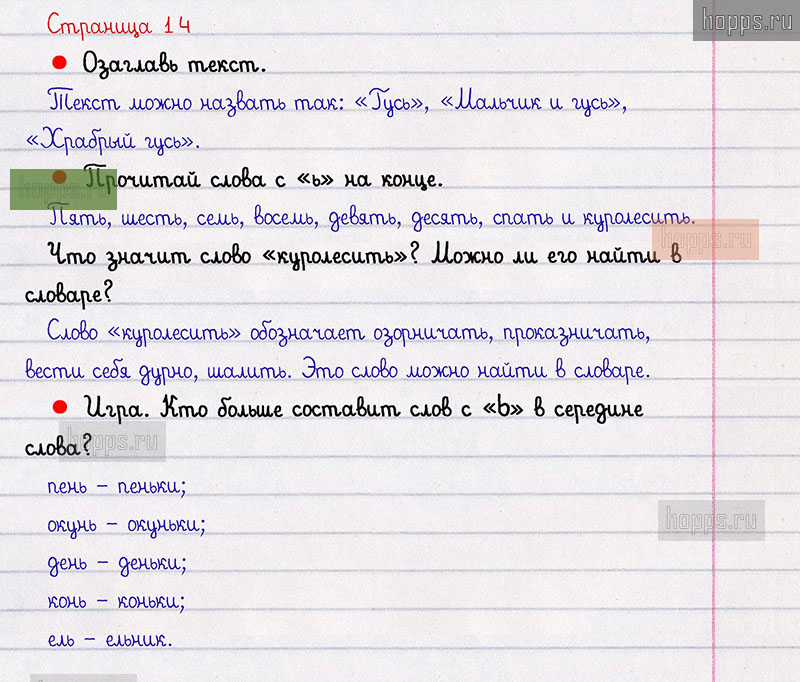 hopps.ru
Страница 14
Озаглавь текст.
Текст можно назвать так: «Гусь», «Мальчик и гусь»,
«Храбрый гусь».
Прочитай слова с «ь» на конце.
hopps.ru
Пять, шесть, семь, восемь, девять, десять, спать и куролесить.
hopps.ru
Что значит слово «куролесить»? Можно ли его найти в
словаре?
Слово «куролесить» обозначает озорничать, проказничать,
вести себя дурно, шалить. Это слово можно найти в словаре.
Игра. Кто больше составит слов с «ь» в середине
слова?
hopps.ru
пень – пеньки;
окунь – окуньки;
hopps.ru
день – деньки;
конь – коньки;
ель – ельник.